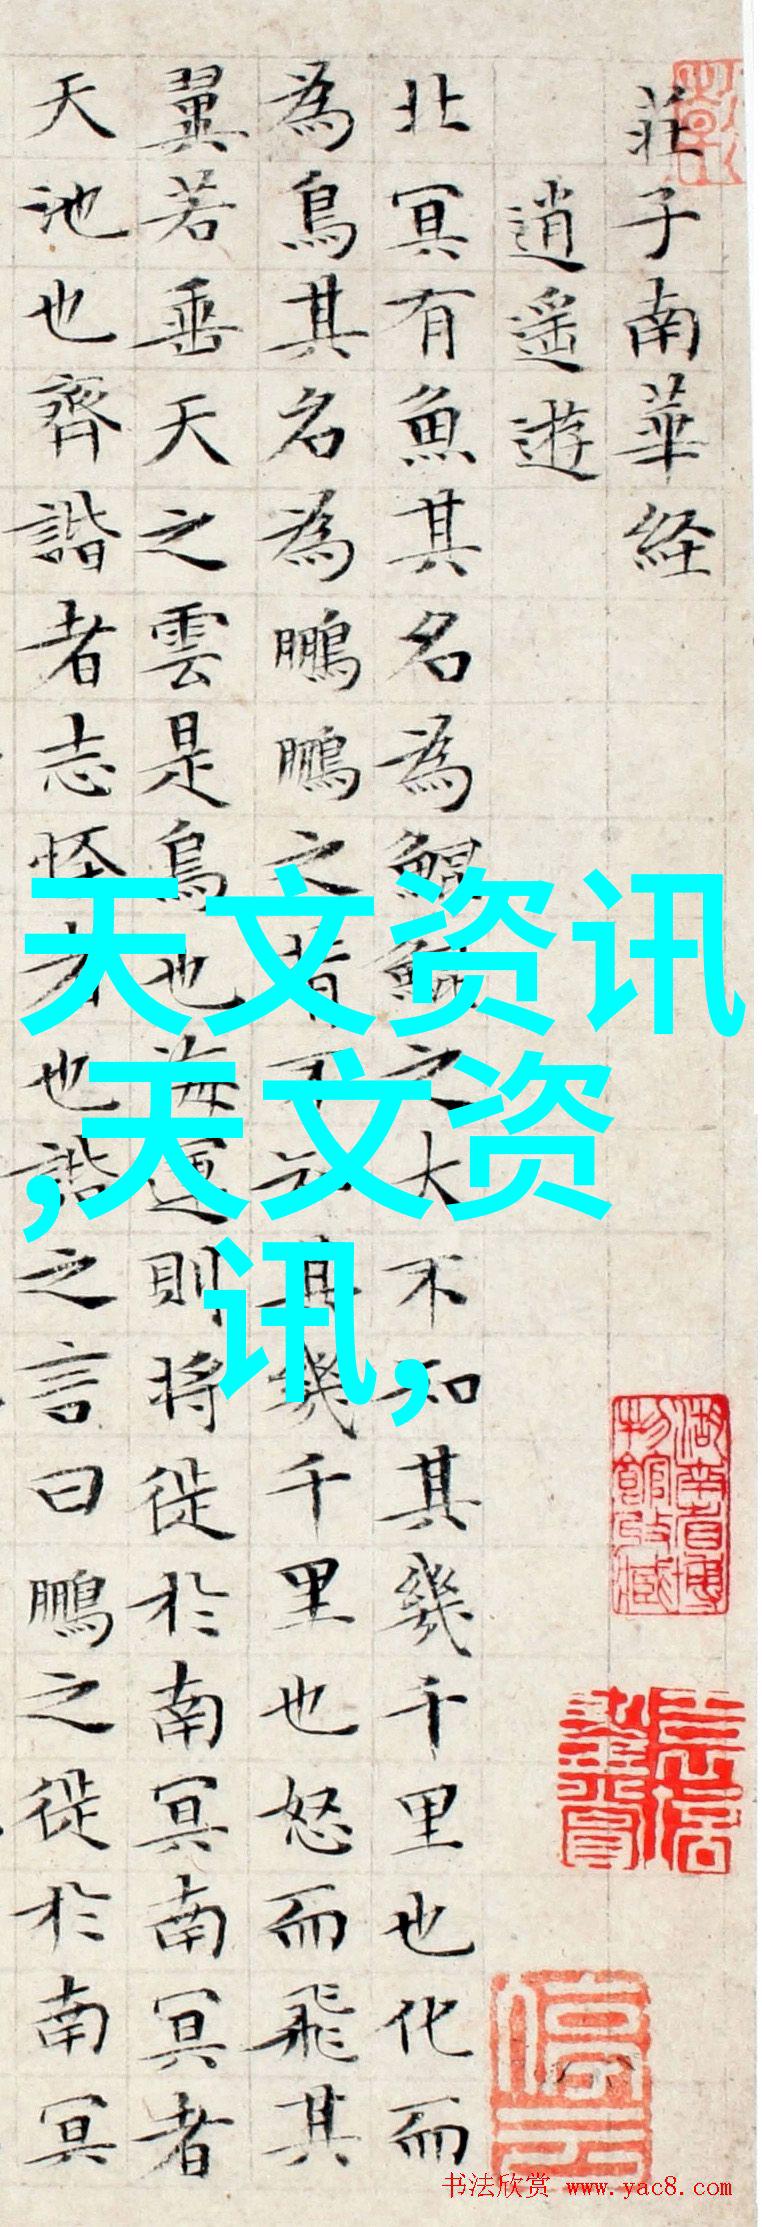 莊子南華経
逍遥遊
北冥有魚其名為鯤鯤之大不知其幾千里也化而
為鳥其名為鵬鵬之背不知其幾千里也怒而飛其
翼若垂天之雲是鳥也海運則将徙於南冥南冥者
天池也齊諧者志怪者也諧之言曰鵬之徙於南冥
天文资讯
,天文资
讯,
湖南省博
物館收藏
书法欣赏 www.yac8.com